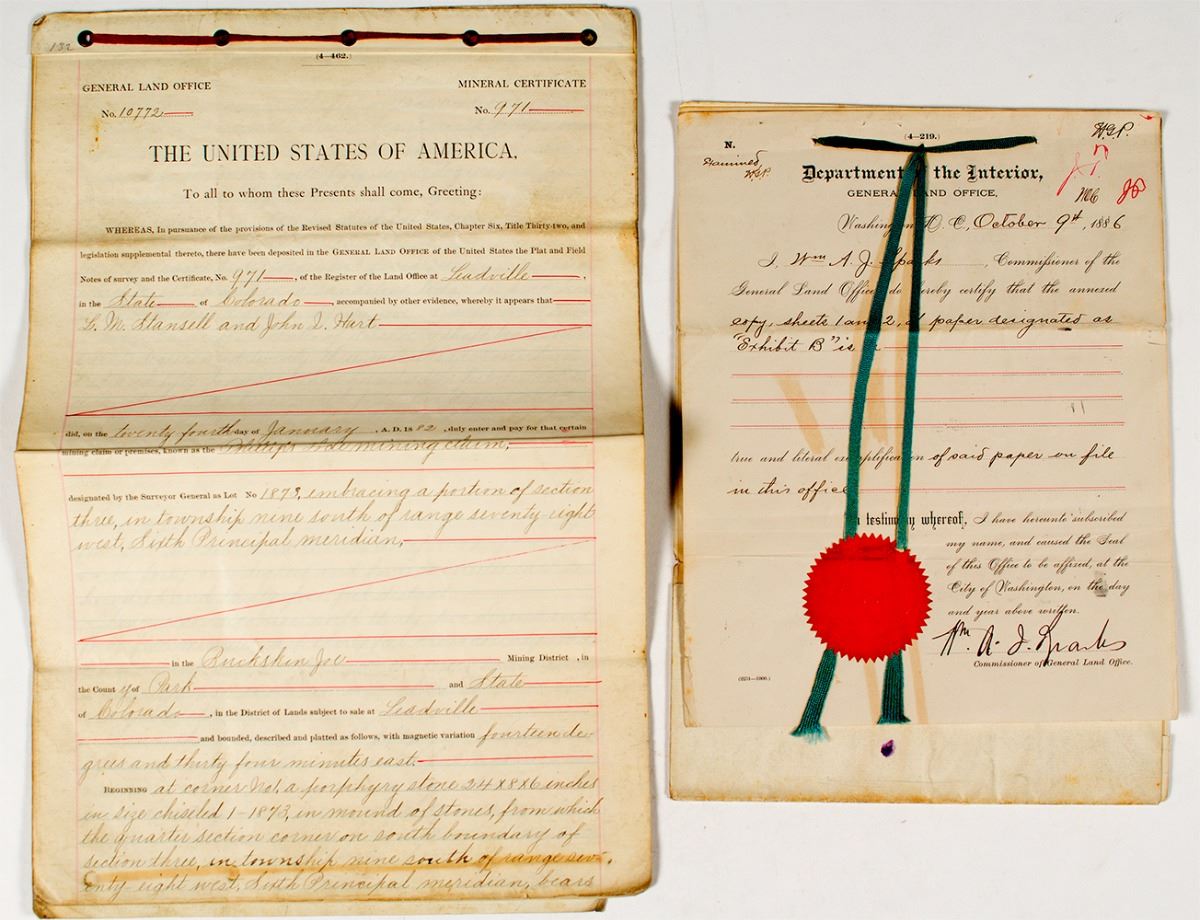 132
(4—462.)
GENERAL LAND OFFICE
MINERAL CERTIFICATE
No. 10772
No. 971
THE UNITED STATES OF AMERICA,
To all to whom these Presents shall come, Greeting:
WHEREAS, In pursuance of the provisions of the Revised Statutes of the United States, Chapter Six, Title Thirty-two, and
legislation supplemental thereto, there have been deposited in the GENERAL LAND OFFICE of the United States the Plat and Field
Notes of survey and the Certificate, No. 971, of the Register of the Land Office at Leadville,
in the State of Colorado, accompanied by other evidence, whereby it appears that
M. Stansell and John Hart
did, on the twenty fourth day of January, A. D. 1882, duly enter and pay for that certain
mining claim or premises, known as the mining claim,
designated by the Surveyor General as Lot No 1873, embracing a portion of section
three, in township nine south of range seventy-eight
west, Sixth Principal meridian,
in the Buckskin Joe Mining District, in
the County of Park and State
of Colorado, in the District of Lands subject to sale at Leadville
and bounded, described and platted as follows, with magnetic variation fourteen de-
grees and thirty four minutes east.
BEGINNING at corner No 1. a porphyry stone 24X8X6 inches
in size chiseled 1-1873, in mound of stones, from which
the quarter section corner on south boundary of
section three, in township nine south of range sev-
enty-eight west, Sixth Principal meridian, bears
(4—219.)
N.
H.G.P.
Examined,
H.G.P.
Department of the Interior,
GENERAL LAND OFFICE,
Washington, D. C., October 9th, 1886
I, Wm A. J. Sparks, Commissioner of the
General Land Office do hereby certify that the annexed
copy, sheets 1 and 2, of paper designated as
"Exhibit B" is a
true and literal exemplification of said paper on file
in this office
In testimony whereof, I have hereunto subscribed
my name, and caused the Seal
of this Office to be affixed, at the
City of Washington, on the day
and year above written.
Wm. A. J. Sparks
Commissioner of General Land Office.